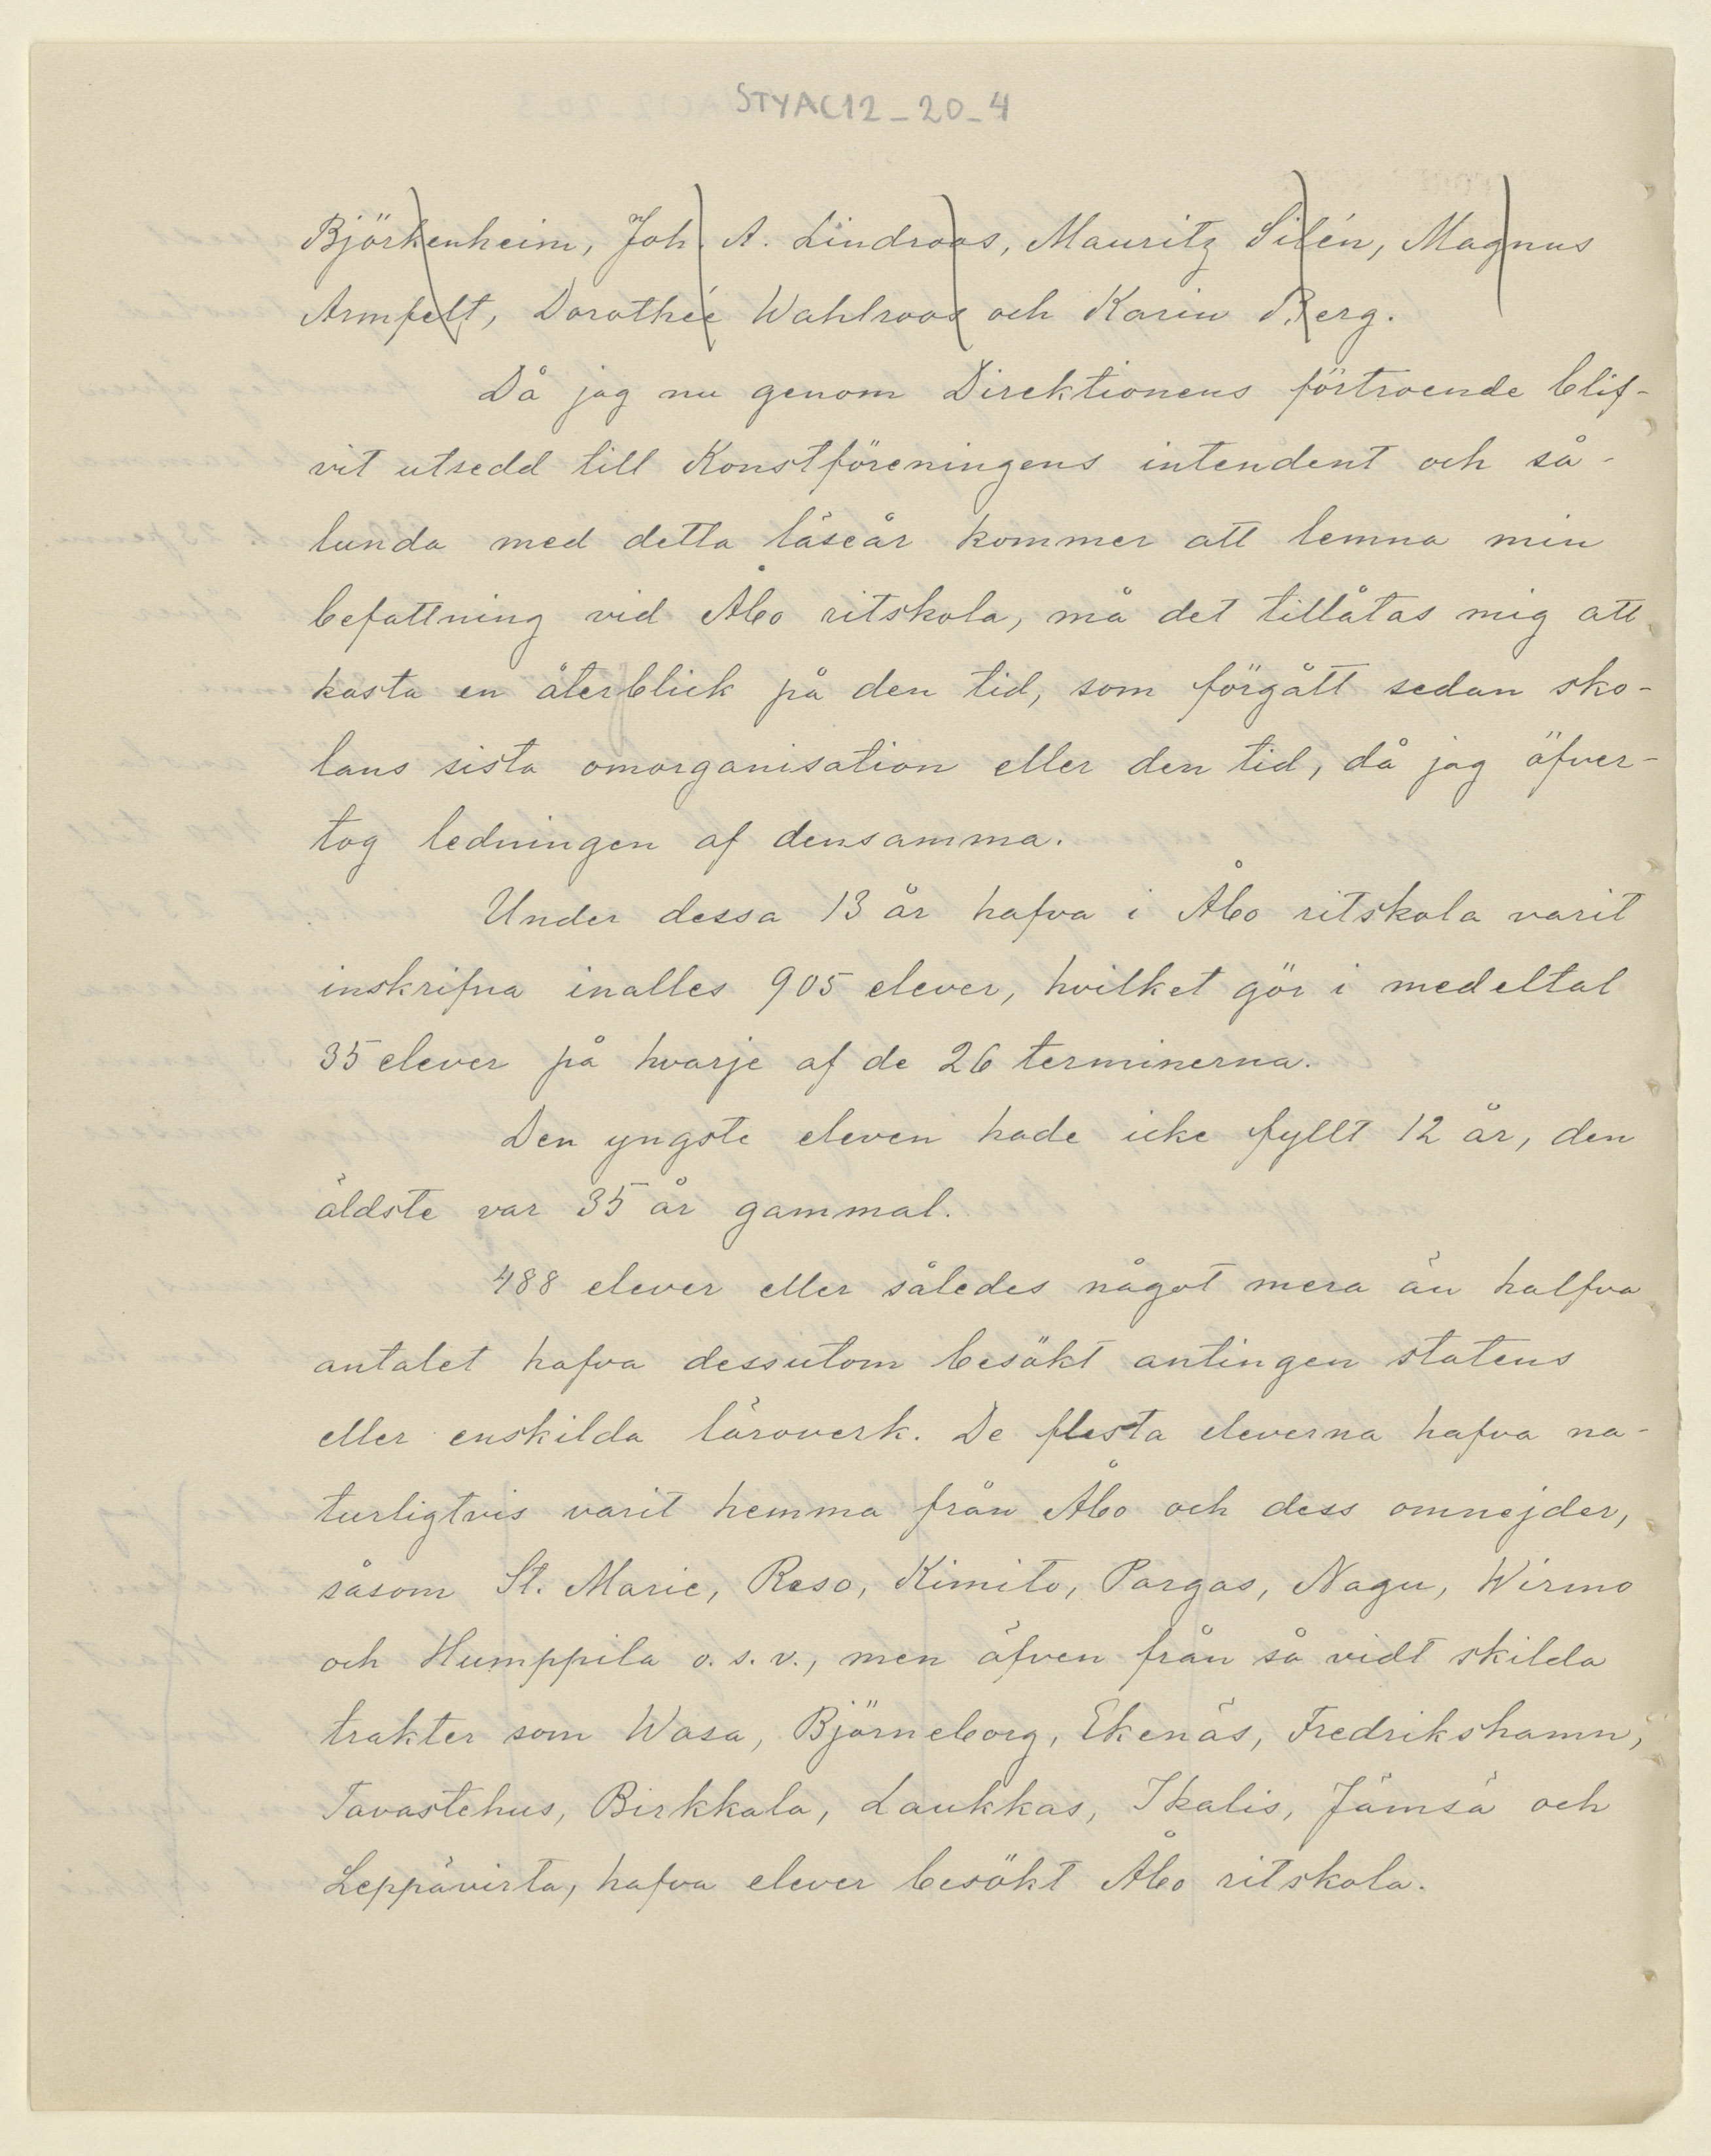 STYAC12_20_4
Björkenheim, Joh. A. Lindroos, Mauritz Silén, Magnus
Armfelt, Dorothée Wahlroos och Karin Berg.
Då jag nu genom Direktionens förtroende blif-
vit utsedd till Konstföreningens intendent och så-
lunda med detta läseår kommer att lemna min
befattning vid Åbo ritskola, må det tillåtas mig att
kasta en återblick på den tid, som förgått sedan sko-
lans sista omorganisation eller den tid, då jag öfver-
tog ledningen af densamma.
Under dessa 13 år hafva i Åbo ritskola varit
inskrifna inalles 905 elever, hvilket gör i medeltal
35 elever på hvarje af de 26 terminerna.
Den yngste eleven hade icke fyllt 12 år, den
äldste var 35 år gammal.
488 elever eller således något mera än halfva
antalet hafva dessutom besökt antingen statens
eller enskilda läroverk. De flesta eleverna hafva na-
turligtvis varit hemma från Åbo och dess omnejder,
såsom St. Marie, Reso, Kimito, Pargas, Nagu, Wirmo
och Humppila o.s.v., men äfven från så vidt skilda
trakter som Wasa, Björneborg, Ekenäs, Fredrikshamn,
Tavastehus, Birkkala, Laukkas, Ikalis, Jämsä och
Leppävirta, hafva elever besökt Åbo ritskola.